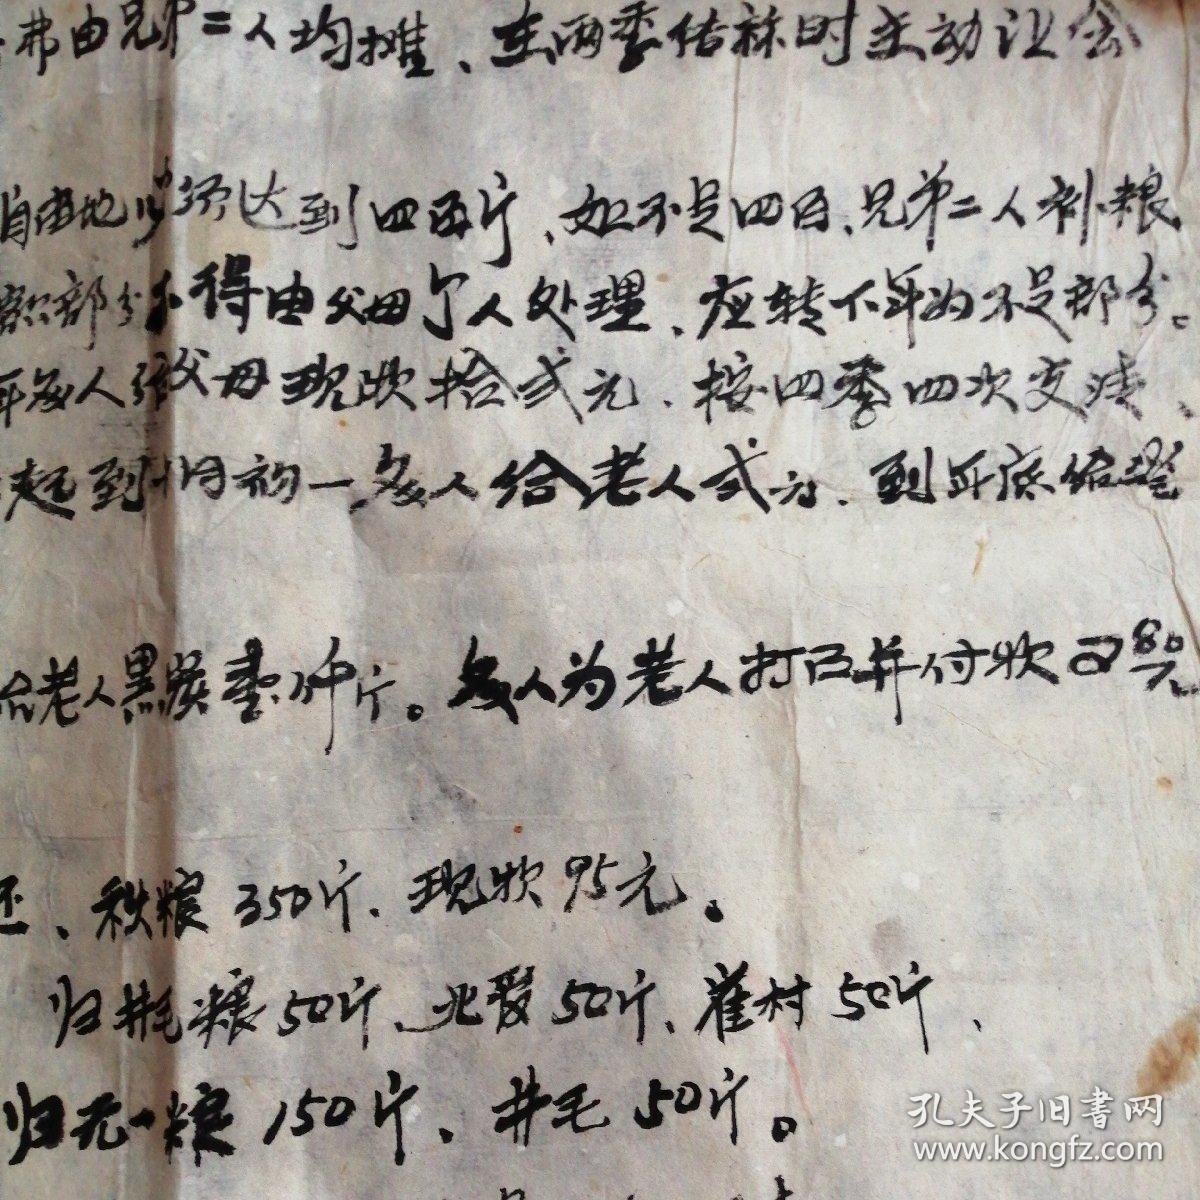 弗由兄弟二人均摊、在两季估称时主动让会
自由地必须达到四百斤、如不足四百、兄弟二人补粮
部分不得由父母个人处理、应转下年为不足部分。
年每人给父母现款拾弍元、按四季四次交清、
起到初一每人给老人弍元、到年底结
老人黑炭壹仟斤。每人为老人打已并付款 80元
还、秋粮350斤、现款95元。
归井毛粮50斤、北爱50斤、崔村50斤、
归元一粮150斤、井毛50斤。
孔夫子旧书网
www.kongfz.com